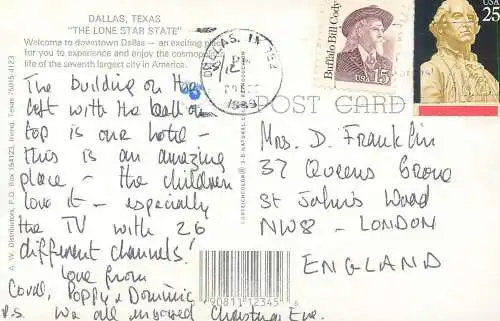 DALLAS, TEXAS
"THE LONE STAR STATE"
Welcome to downtown Dallas — an exciting place
for you to experience and enjoy the cosmopolitan
life of the seventh largest city in America.
The building on the
left with the ball on
top is our hotel -
this is an amazing
place - the children
love it - especially
the TV with 26
different channels!
Love from
Coral, Poppy & Dominic
P.S. We all enjoyed Christmas Eve.
A. W. Distributors, P.O. Box 154123, Irving, Texas 75015-4123
DALLAS, TX
1989
Buffalo Bill Cody
15
USA
USA
25
POST CARD
Mrs. D. Franklin
37 Queens Grove
St John's Wood
NW8 - LONDON
ENGLAND
90811 12345 6